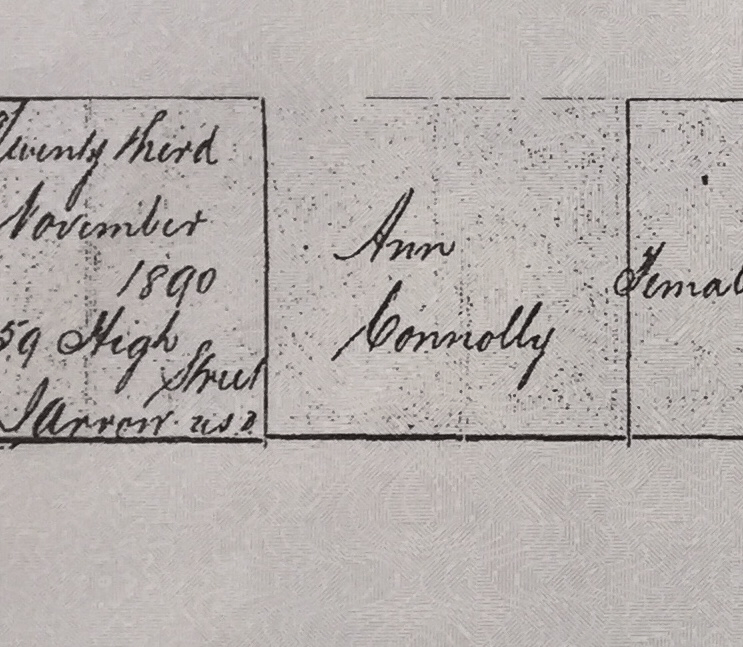 Twenty third
November
1890
59 High
Street
Jarrow U.S.D
Ann
Connolly
Femal